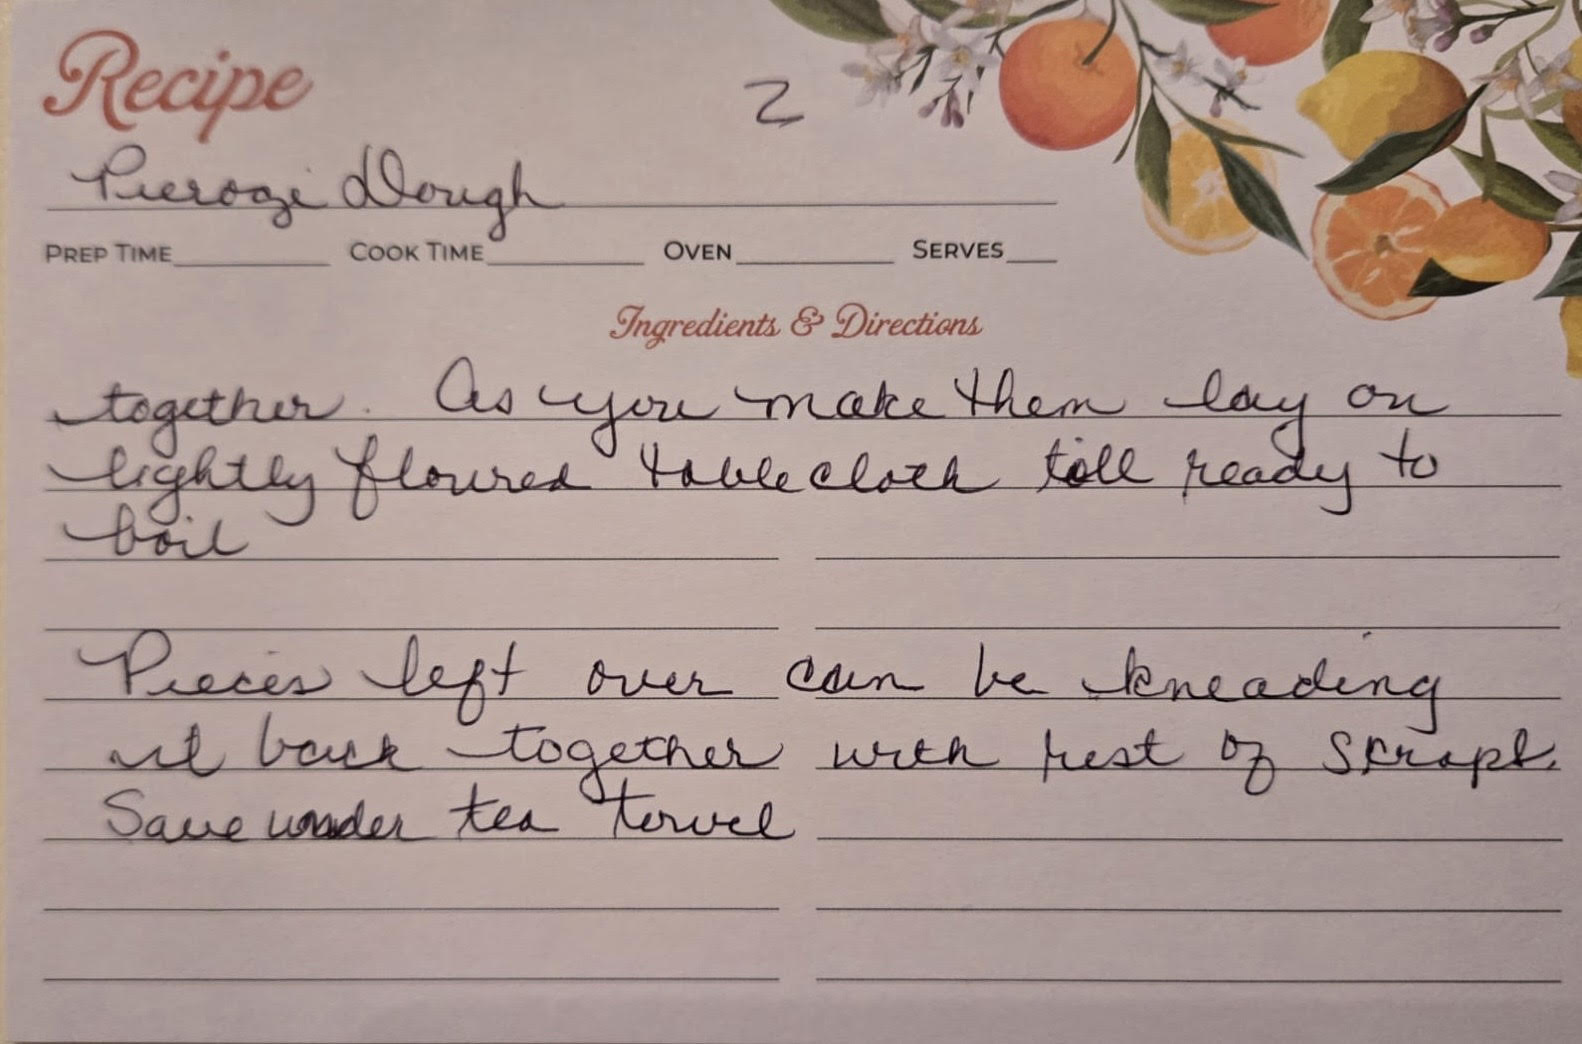 Recipe
2
Pierogi Dough
PREP TIME COOK TIME OVEN SERVES
Ingredients & Directions
together. As you make them lay on
lightly floured tablecloth till ready to
boil
Pieces left over can be kneading
it back together with rest of scraps.
Save under tea towel